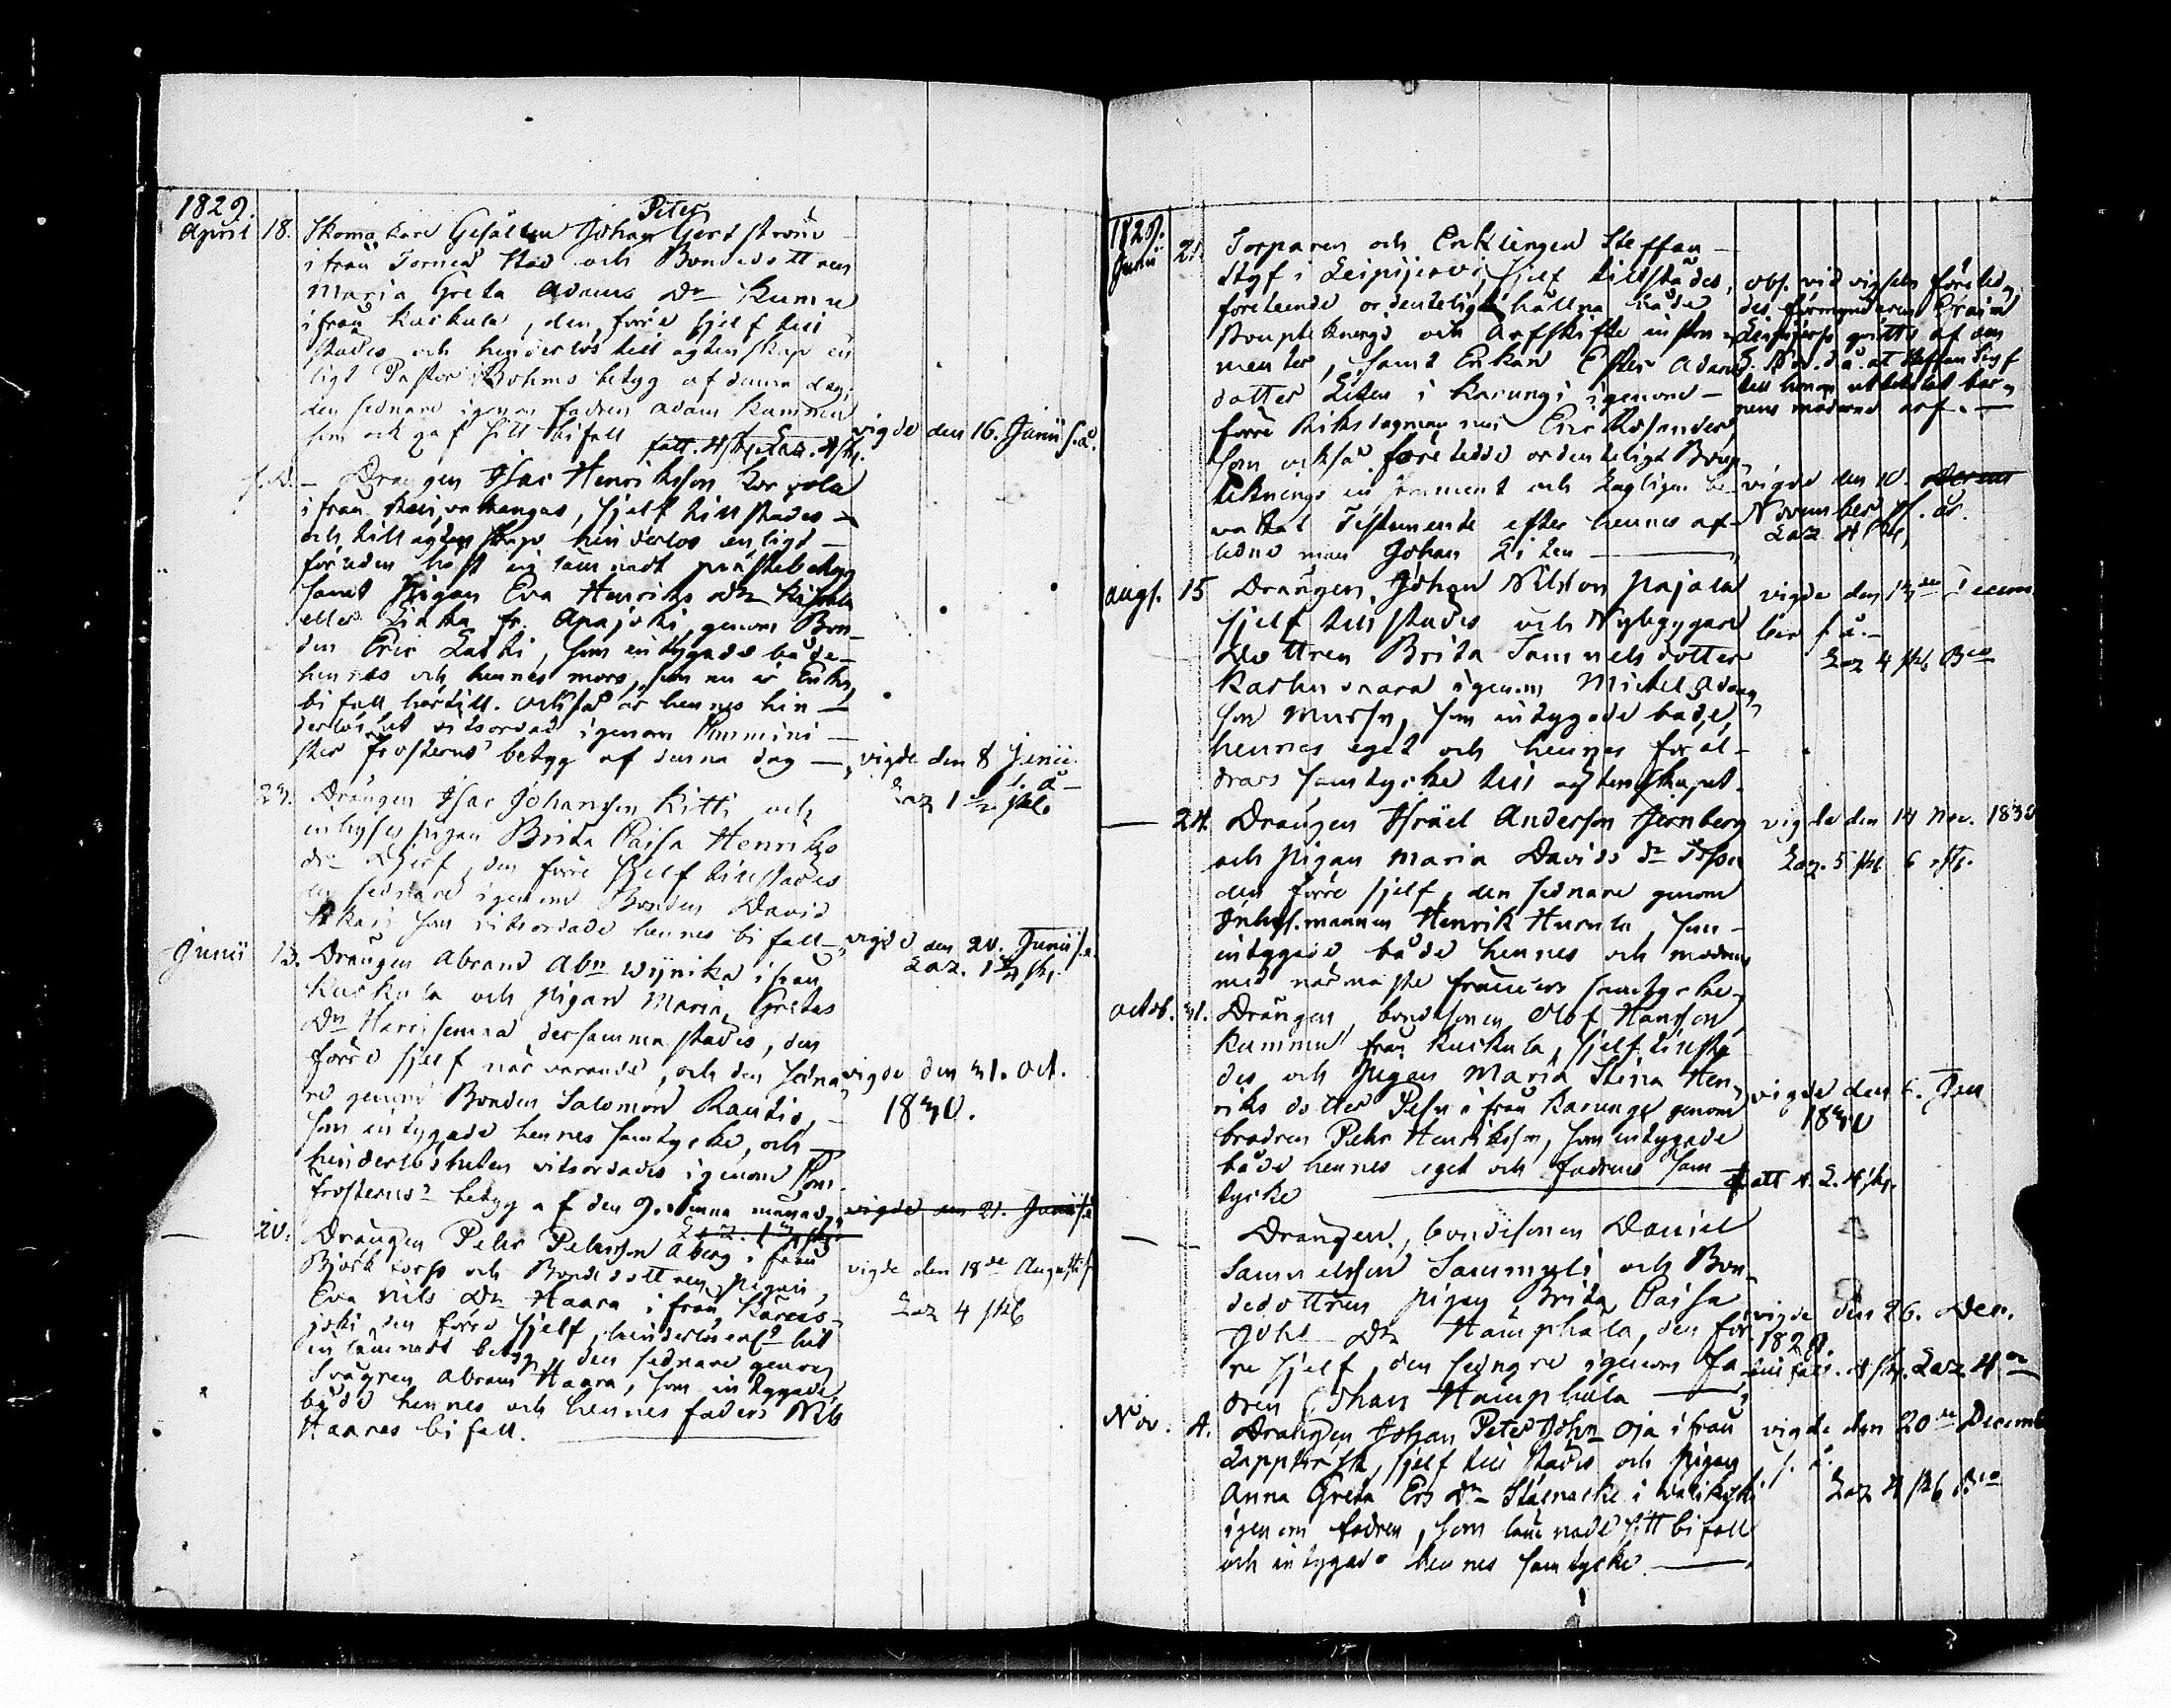 1829.
April 18. Skomakare Gesällen Johan Peter Gerdström
ifrån Torneå Stad och Bondedottren
Maria Greta Adams Dr Kumu
ifrån Kuckula, den förre sjelf till
städes och hinderlös till ägtenskap en
ligt Pastor Bohms betyg af denna dag,
den sednare igenom fadren Adam Kummu
som ock gaf sitt bifall
fatt. 4 sk. Laz. 4 sk.
vigde den 16. Junii s. å.
s. d. – Drängen Isac Henriksson Korpela
ifrån, sjelf tillstädes –
och till ägtenskap hinderlös enligt –
föruden höst ing lämnadt prästebetyg
samt Pigan Eva Henriks dr
eller fr. Apajoki, genom Bon-
den Eric Lakki, som intygade både
hennes och hennes mors, som nu är Enka,
bifall härtill. Också är hennes hin-
derlöshet vitsordad igenom
ster Frosterus' betyg af denna dag –
vigde den 8 Junii
s. å –
Laz 1 1/2 sk
23. Drängen Isac Johansson Kitti och
inhyses pigan Brita Caisa Henriks
dr, den förre sjelf tillstädes
den sednare igenom Bonden David
som vitsordade hennes bifall –
vigde den 20. Junii s. å.
Laz. 1 1/2 sk.
Junii 13. Drängen Abram Abrn Wynika ifrån
Kuckula och pigan Maria Gretas
Dr dersamma städes, den
förre sjelf närvarande, och den sedna
re genom Bonden Salomon Rautio, –
som intygade hennes samtycke, och –
hinderlösheten vitsordades igenom
Frosterus' betyg af den 9. denna månad,
vigde den 31. Oct.
1830.
vigde den 21. Junii s. å
– 20. Drängen Pehr Pehrsson Åberg ifrån
Björktorp och Bondedottren, pigan,
Eva Nils Dr Haara ifrån Kareis-
joki den förre sjelf, hinderlös enl. hit
inlämnadt betyg, den sednare genom
Svågren Abram Haara, som intygade
både hennes och hennes faders Nils
Haaras bifall.
vigde den 18de Augusti s
Laz 4 sk
1829.
Junii 21. Torparen och Enklingen Steffan –
Styf i Leipijärvi, sjelf tillstädes,
företeende ordenteligt hållna både
Bouptecknings och Arfskifte instru
menter, samt Enkan Ester Adams
dotter Liten i Karungi igenom –
förre Riksdagman Eric Rosander,
som också företedde ordenteligt Boup-
tecknings instrument och Lagligen be-
vakat Testamente efter hennes af-
ledne man Johan Liten
obs. vid vigseln företed-
des förmyndaren
Leipijärvi qvitto af den
at Steffan Styf
till honom utbetalt bar-
nens möderne arf. –
vigde den 10.
November s. år.
Laz 4 sk,
augs. 15 Drängen, Johan Nilsson Pajala
sjelf tillstädes och Nybyggare
dottren Brita Samuels dotter
igenom Michel Adams
son Mursu, som intygade både,
hennes eget och hennes föräl-
drars samtycke till ägtenskapet.
vigde den 13de Decem
ber s å. –
Laz 4 sk Bco
– 24. Drängen Israel Anderson Jernberg
och pigan Maria Davids dr
den förre sjelf, den sednare genom
Inhys.mannen Henrik Hurula, som –
intygade både hennes och modrens
med närmaste fränders samtycke.
vigde den 14 Nov. 1830
Laz. 5 sk 6 rst.
octob. 31. Drängen, bondesonen Olof Hansson
Kummu från Kuckula, sjelf tillstä
des och Pigan Maria Stina Hen-
riks dotter ifrån Karungi genom
brodren Pehr Henriksson, som intygade
både hennes eget och fadrens sam
tycke
vigde den 6. Jan
1830
Fatt 4. L. 4 sk.
– – Drängen, bondesonen Daniel
Samuelsson Sammeli och Bon-
dedottren pigan Brita Caisa
Johs Dr Hamphala, den för-
re sjelf, den sednare igenom fa-
dren Johan Hamphala
vigde den 26. Dec.
1829.
till fatt. 4 sk. Laz 4
Nov. 4. Drängen Johan Peter Johsn Oja ifrån
sjelf tillstädes och pigan
Anna Greta Ers Dr Stålnacke i
igenom fadren, som lämnade sitt bifall
och intygade hennes samtycke.
vigde den 20de Decemb
s. å.
Laz 4 sk Bco